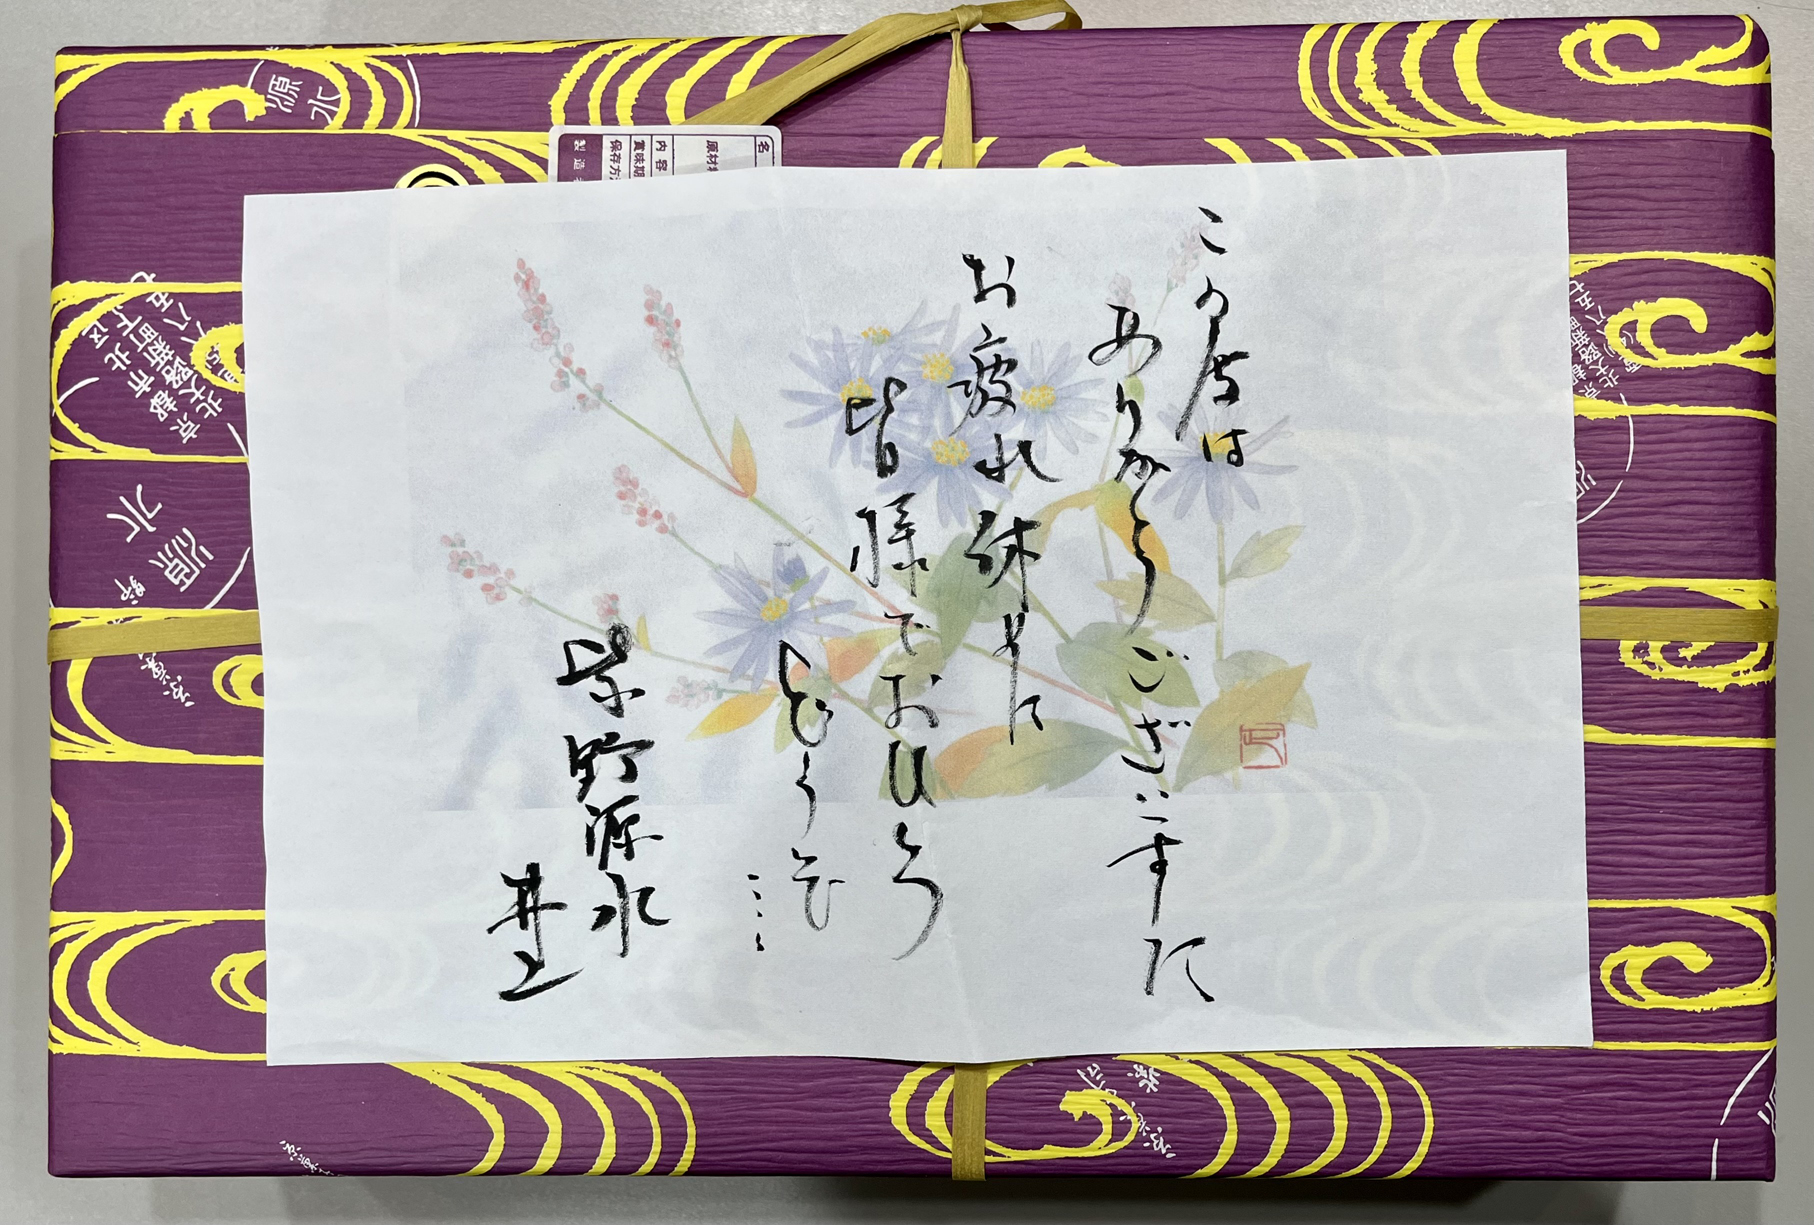 この度は
ありがとうございました
お疲れ休めに
皆様でおひとつ
どうぞ
紫野源水
井上
源水
名
原材
内容
賞味期
保存方
製造
源水
京都市北区
北大路新町下